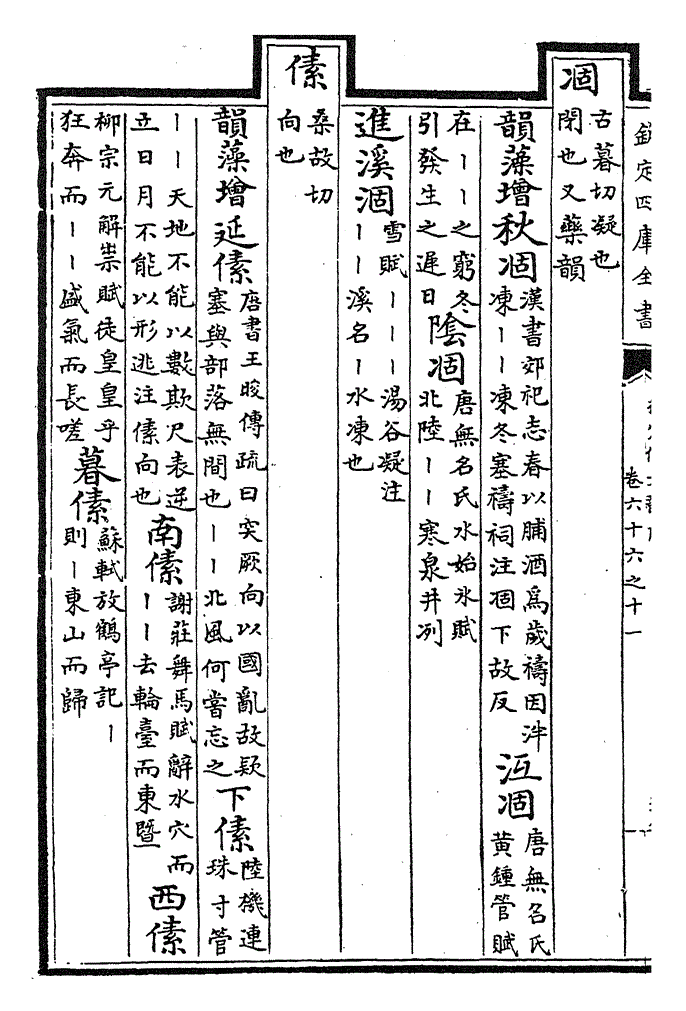 欽定四庫全書
卷六十六之十一
凅
古暮切凝也
閉也又藥韻
韻藻增秋凅
漢書郊祀志春以脯酒為歲禱因泮
凍丨丨凍冬塞禱祠注凅下故反
沍凅
唐無名氏
黄鍾管賦
在丨丨之窮冬
引發生之遲日
陰凅
唐無名氏水始氷賦
北陸丨丨寒泉井冽
進溪凅
雪賦丨丨丨湯谷凝注
丨丨溪名丨水凍也
傃
桑故切
向也
韻藻增延傃
唐書王晙傳疏曰突厥向以國亂故欵
塞與部落無間也丨丨北風何嘗忘之
下傃
陸機連
珠寸管
丨丨天地不能以數欺尺表逆
立日月不能以形逃注傃向也
南傃
謝莊舞馬賦辭水穴而
丨丨去輪臺而東暨
西傃
柳宗元解祟賦徒皇皇乎
狂奔而丨丨盛氣而長嗟
暮傃
蘇軾放鶴亭記丨
則丨東山而歸